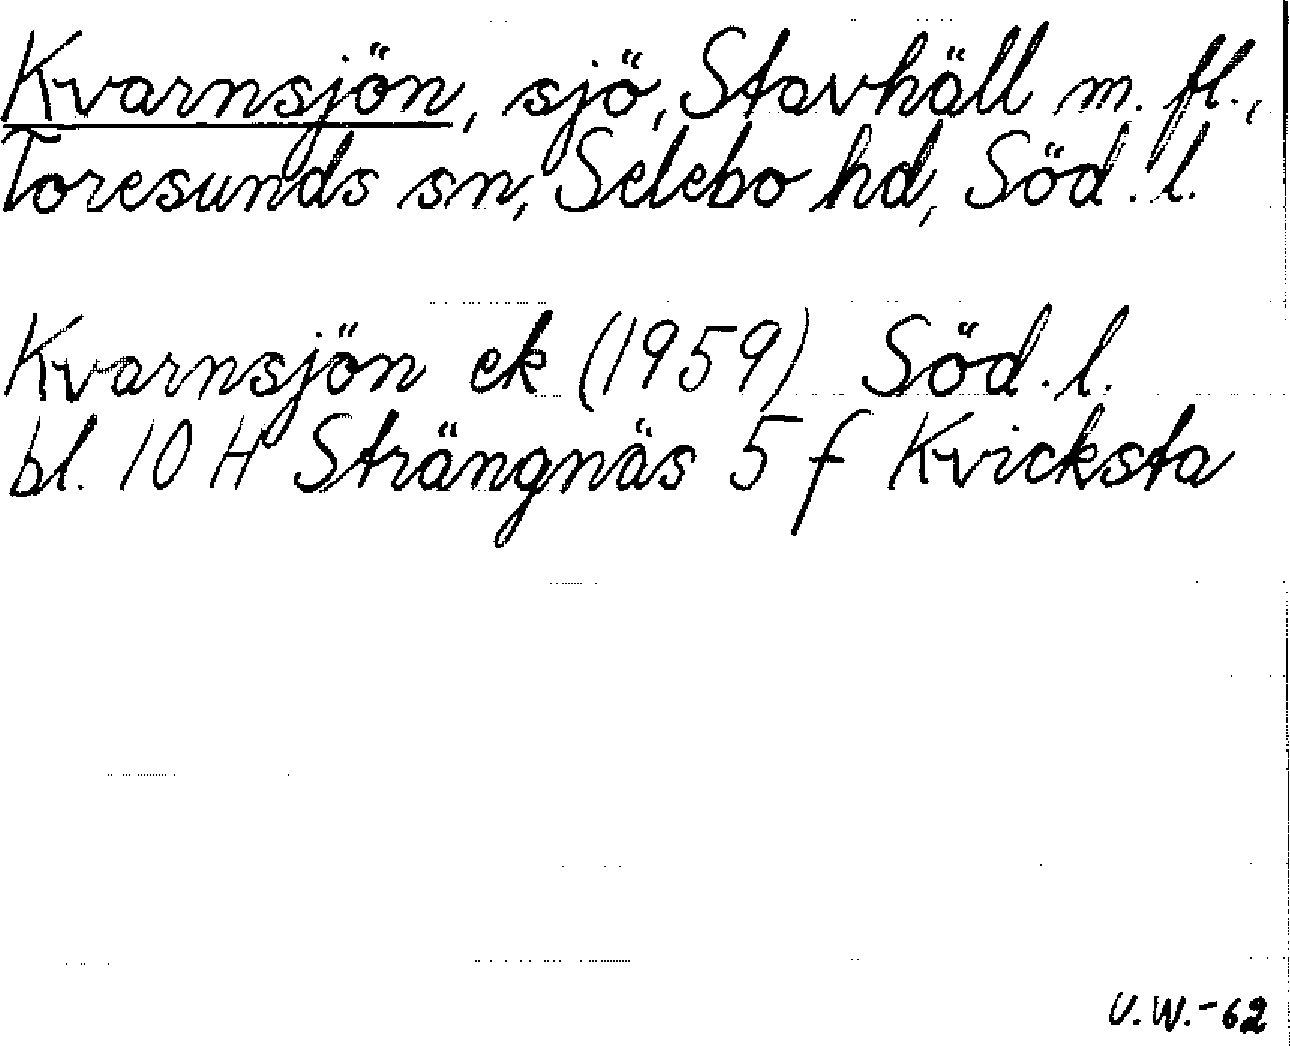 Kvarnsjön, sjö, Stavhäll m. fl.,
Toresunds sn, Selebo hd, Söd. l.
Kvarnsjön ek (1959) Söd. l.
bl. 10 H Strängnäs 5 f Kvicksta
U.W.-62